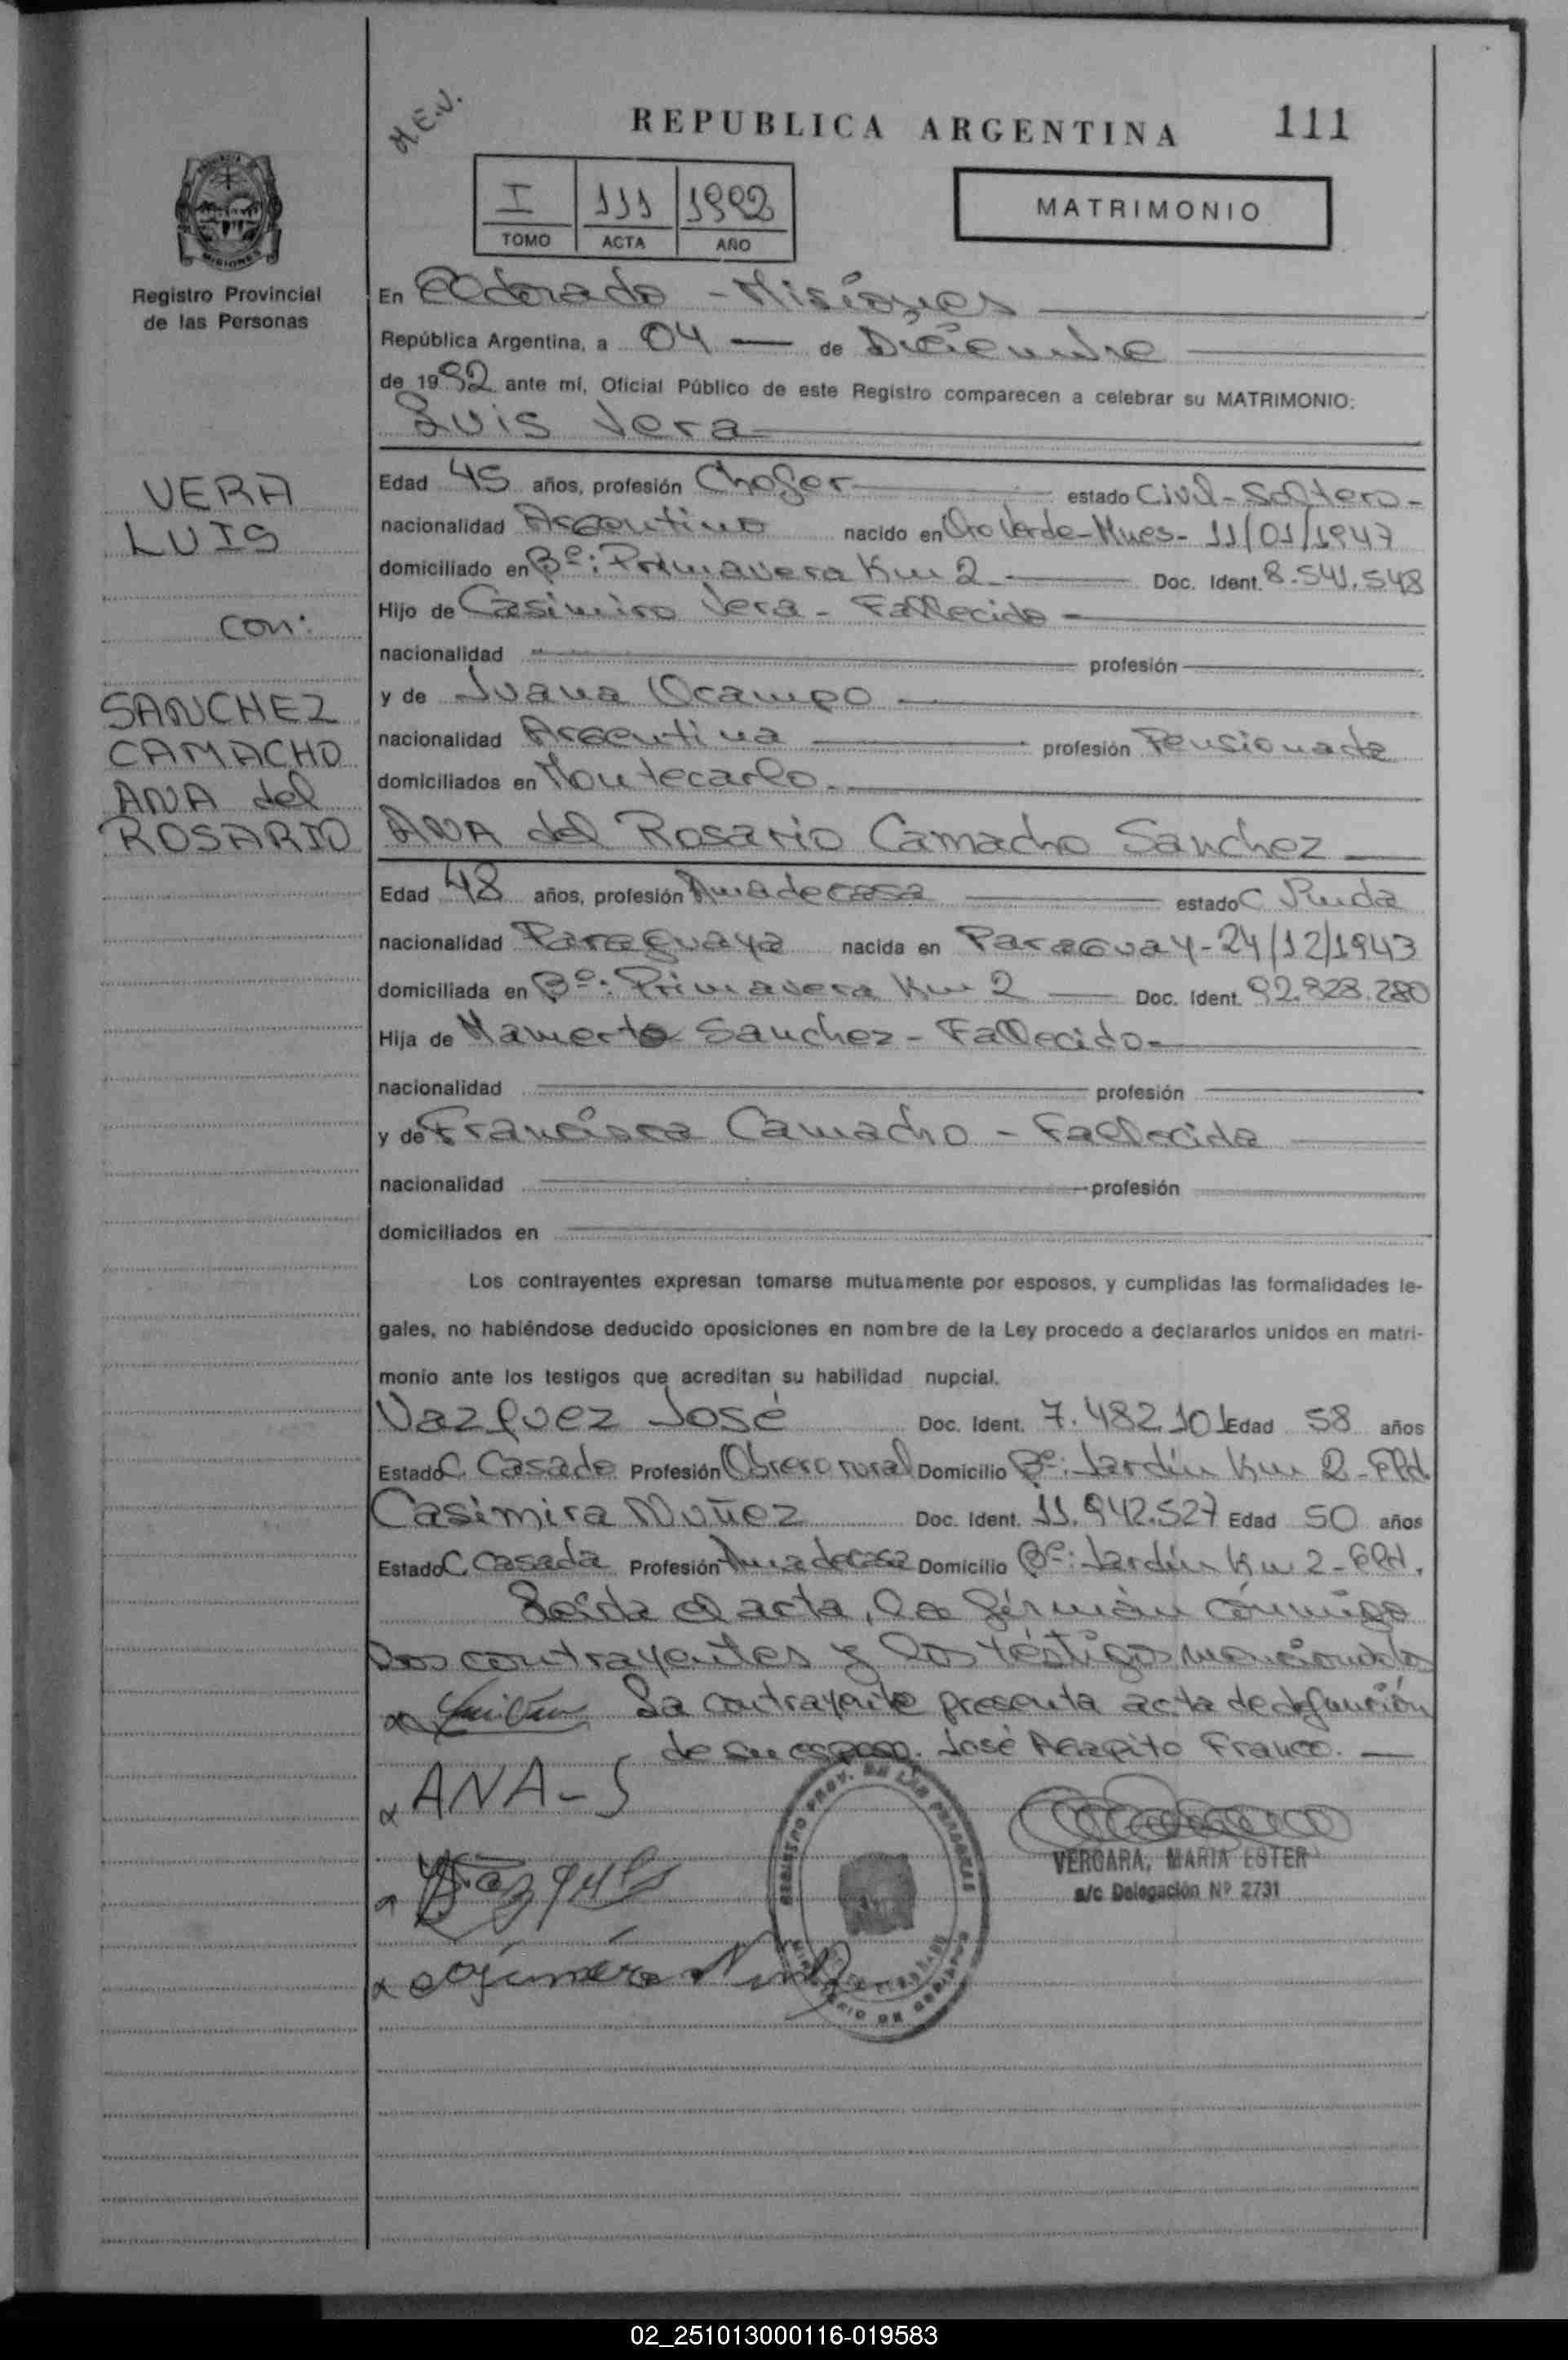 M.E.V.
REPUBLICA ARGENTINA 111
I 111 1992
TOMO ACTA AÑO
MATRIMONIO
MISIONES
Registro Provincial
de las Personas
VERA
LUIS
con:
SANCHEZ
CAMACHO
ANA del
ROSARIO
En Eldorado - Misiones
República Argentina, a 04 de Diciembre
de 1992 ante mí, Oficial Público de este Registro comparecen a celebrar su MATRIMONIO:
Luis Vera
Edad 45 años, profesión Chofer estado Civil - Soltero -
nacionalidad Argentino nacido en Oro Verde - Mnes - 11/01/1947
domiciliado en Bº: Primavera Km 2 Doc. Ident. 8.541.548
Hijo de Casimiro Vera - Fallecido -
nacionalidad profesión
y de Juana Ocampo
nacionalidad Argentina profesión Pensionada
domiciliados en Montecarlo.
ANA del Rosario Camacho Sanchez
Edad 48 años, profesión Ama de casa estado C Viuda
nacionalidad Paraguaya nacida en Paraguay - 24/12/1943
domiciliada en Bº: Primavera Km 2 Doc. Ident. 92.828.280
Hija de Mamerto Sanchez - Fallecido -
nacionalidad profesión
y de Francisca Camacho - Fallecida
nacionalidad profesión
domiciliados en
Los contrayentes expresan tomarse mutuamente por esposos, y cumplidas las formalidades le-
gales, no habiéndose deducido oposiciones en nombre de la Ley procedo a declararlos unidos en matri-
monio ante los testigos que acreditan su habilidad nupcial.
Vazquez José Doc. Ident. 7.482.101 Edad 58 años
Estado C. Casado Profesión Obrero rural Domicilio Bº: Jardín Km 2 - Eld.
Casimira Nuñez Doc. Ident. 11.942.527 Edad 50 años
Estado C. Casada Profesión Ama de casa Domicilio Bº: Jardín Km 2 - Eld.
Leída el acta, la firman conmigo
los contrayentes y los testigos mencionados
La contrayente presenta acta de defunción
de su esposo. José Agapito Franco.
x ANA - S
x Vazques
x Casimira Nuñez
REGISTRO PROV. DE LAS PERSONAS
MINISTERIO DE GOBIERNO
VERGARA, MARIA ESTER
a/c Delegación Nº 2731
02_251013000116-019583